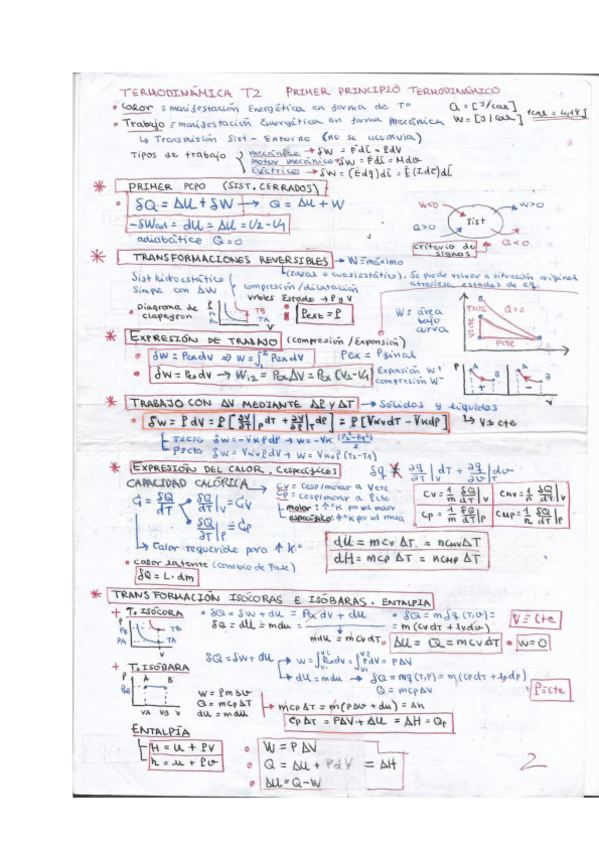 TERMODINÁMICA T2 PRIMER PRINCIPIO TERMODINÁMICO
• Calor = manifestación Energética en forma de Tª Q = [J/cal]
• Trabajo = manifestación Energética en forma Mecánica W = [J/cal] 1cal = 4,18J
↳ Transmisión Sist - Entorno (no se acumula)
Tipos de trabajo
mecánico → δW = Fdl = PdV
Motor mecánico → δW = Fdl = Mdα
Eléctrico → δW = (Edq)dl = E(Idt)dl
* PRIMER PCPO (SIST. CERRADOS)
• δQ = ΔU + δW → Q = ΔU + W
-δWad = dU = ΔU = U2 - U1
adiabática Q = 0
W<0 W>0
Sist
Q>0 Q<0
criterio de signos
* TRANSFORMACIONES REVERSIBLES → W = máximo
(ideal = cuasiestático). Se puede volver a situación original
atraviesa estados de eq.
Sist hidrostático
Simple con ΔW
compresión/dilatación
Vrbles Estado → P y V
• Diagrama de Clapeyron
P TB TA V
Pext = P
W = área bajo curva
Q=0
Vcte
Pcte
* EXPRESIÓN DE TRABAJO (Compresión/Expansión)
• δW = Pex dV ⇒ W = ∫ Pex dV Pex = Pfinal
• δW = Pex dV → W1,2 = Pex ΔV = Pex (V2-V1) Expansión W+
compresión W-
* TRABAJO CON ΔV MEDIANTE ΔP y ΔT → Sólidos y líquidos
• δW = P dV = P[∂V/∂T|P dT + ∂V/∂P|T dP] = P[VαdT - VKdP] ↳ V≈cte
T=cte δW = -VKPdP → W = -VK (P2²-P1²)/2
P=cte δW = VαPdT → W = VαP(T2-T1)
* EXPRESIÓN DEL CALOR. C(específicos)
CAPACIDAD CALÓRICA
Cv = cesp/molar a Vcte
Cp = cesp/molar a Pcte
molar: ↑ºK por el molar
específico: ↑ºK por el masa
C = δQ/dT
δQ/dT|V = Cv
δQ/dT|P = Cp
Cv = 1/m δQ/dT|V CMV = 1/n δQ/dT|V
Cp = 1/m δQ/dT|P CMP = 1/n δQ/dT|P
↳ Calor requerido para ↑ Kº
dU = mCvΔT = nCMVΔT
dH = mCpΔT = nCMPΔT
• Calor latente (cambio de Fase)
δQ = L·dm
* TRANSFORMACIÓN ISÓCORAS E ISÓBARAS. ENTALPÍA
+ T. ISÓCORA
P PB PA TB TA
• δQ = δW + dU = Pex dV + dU
δQ = dU = mdu
• δQ = mδq(T,v) =
= m(CvdT + lvdv)
V = cte
mdu = mCvdT
• ΔU = Q = mCvΔT • W=0
+ T. ISÓBARA
P A B
VA VB V
δQ = δW + dU
W = ∫ PexdV = ∫ PdV = PΔV
dU = mdu → δQ = mδq(T,P) = m(CpdT + lpdP)
P=cte
W = PmΔv
Q = mCpΔT
dU = mdu
→ mCpΔT = m(PΔv + du) = Δh
CpΔT = PΔV + ΔU = ΔH = Qp
ENTALPÍA
H = U + PV
h = u + Pv
• W = PΔV
• Q = ΔU + PdV = ΔH
• ΔU = Q - W
2